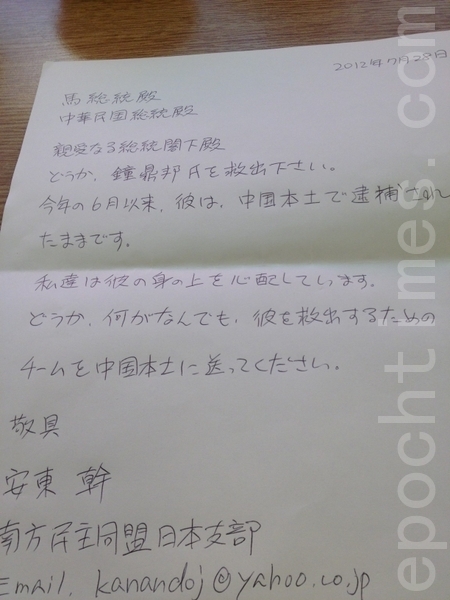 2012年7月28日
馬総統殿
中華民国総統殿
親愛なる総統閣下殿
どうか、鐘鼎邦氏を救出下さい。
今年の6月以来、彼は、中国本土で逮捕され
たままです。
私達は彼の身の上を心配しています。
どうか、何がなんでも、彼を救出するための
チームを中国本土に送ってください。
敬具
安東 幹
南方民主同盟日本支部
Email. kanandoj@yahoo.co.jp
epochtimes.com